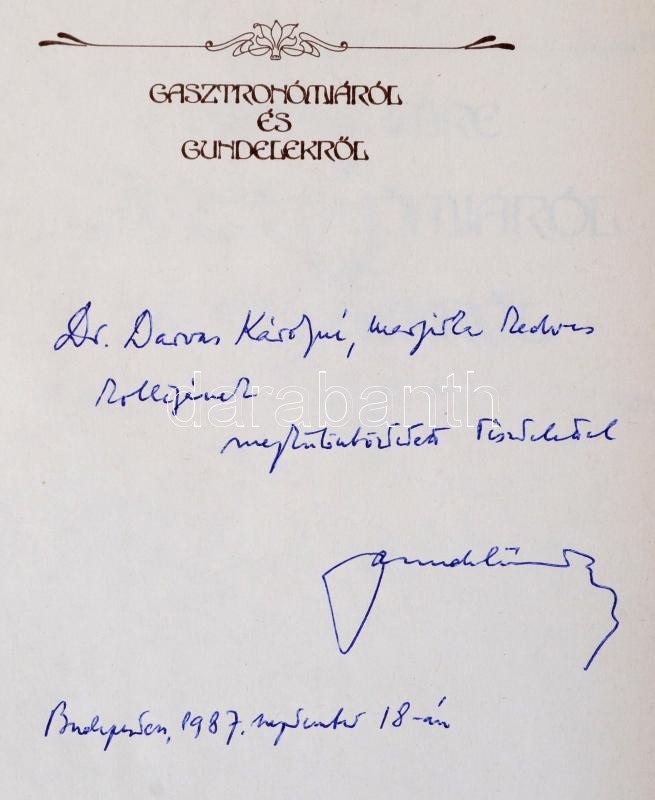 GASZTRONÓMIÁRÓL
ÉS
GUNDELEKRŐL
Dr. Darvas Károlyné, Margitka kedves
kolléganőnek
megkülönböztetett tisztelettel
Gundel Imre
Budapesten, 1987. szeptember 18-án
darabanth